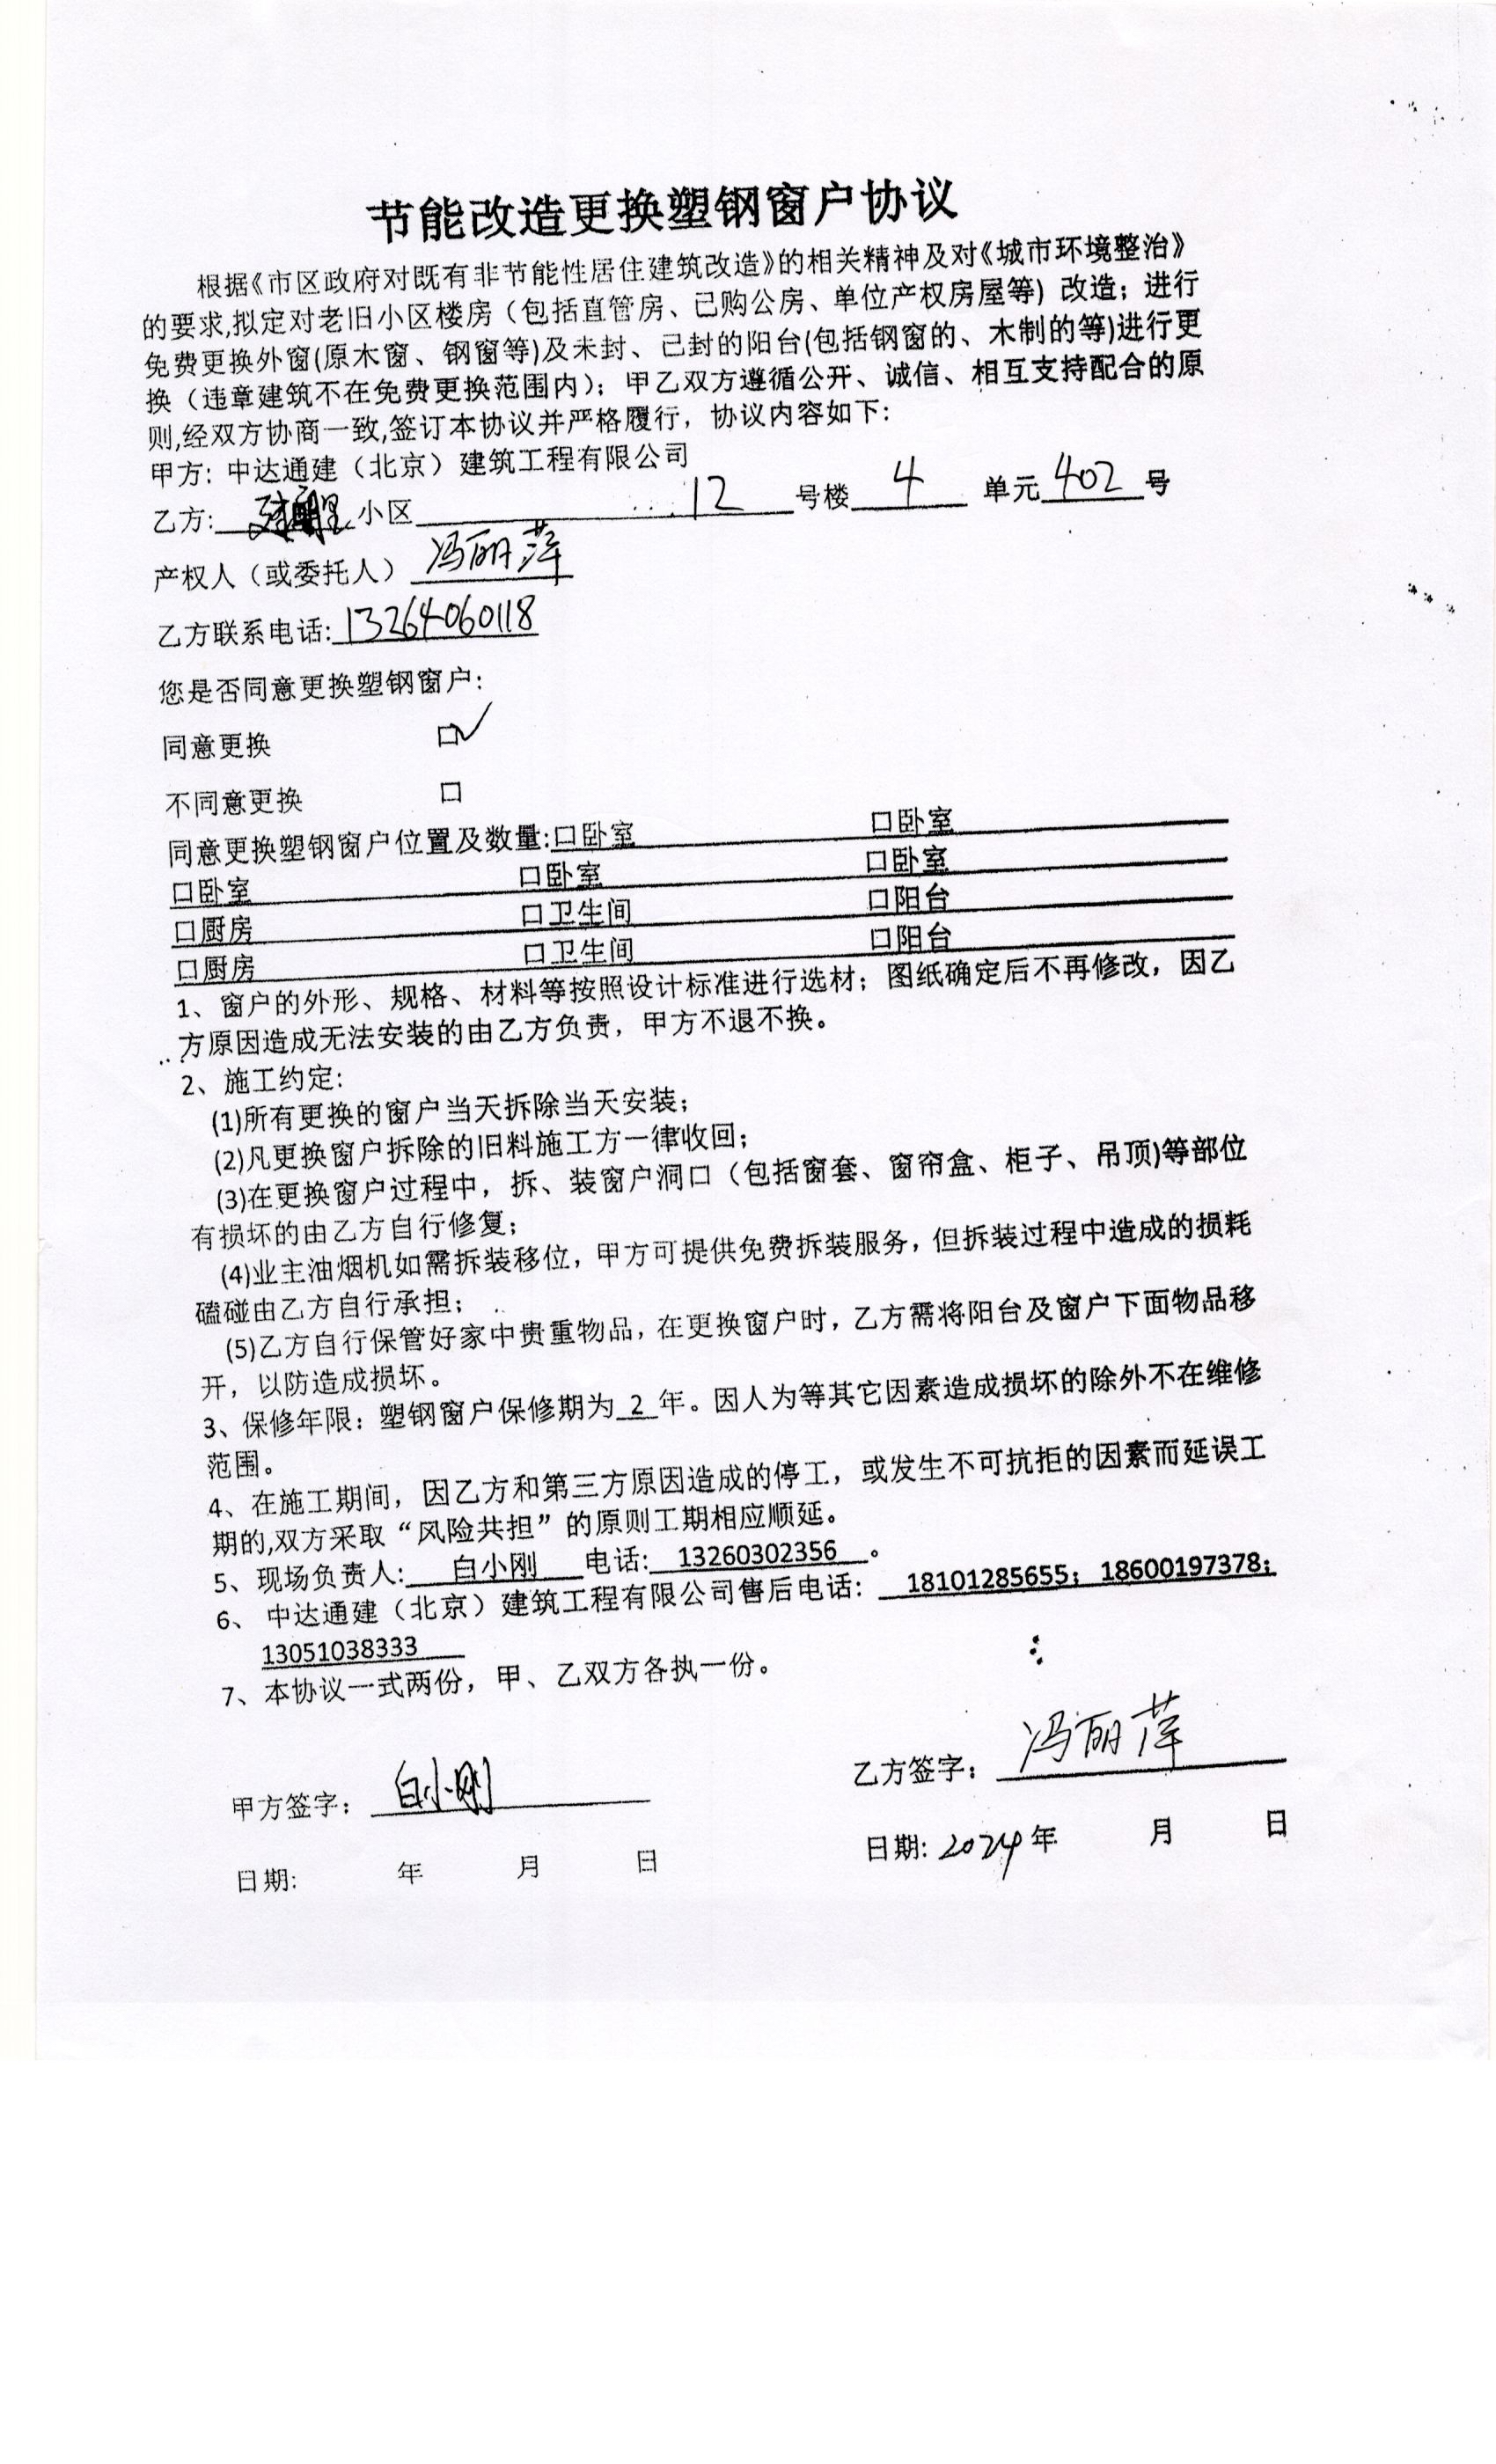 节能改造更换塑钢窗户协议
根据《市区政府对既有非节能性居住建筑改造》的相关精神及对《城市环境整治》
的要求,拟定对老旧小区楼房（包括直管房、已购公房、单位产权房屋等）改造；进行
免费更换外窗(原木窗、钢窗等)及未封、已封的阳台(包括钢窗的、木制的等)进行更
换（违章建筑不在免费更换范围内）；甲乙双方遵循公开、诚信、相互支持配合的原
则,经双方协商一致,签订本协议并严格履行，协议内容如下：
甲方：中达通建（北京）建筑工程有限公司
乙方: 小区 12 号楼 4 单元 402 号
产权人（或委托人） 冯丽萍
乙方联系电话: 13264060118
您是否同意更换塑钢窗户：
同意更换 □✓
不同意更换 □
同意更换塑钢窗户位置及数量:□卧室 □卧室
□卧室 □卧室 □卧室
□厨房 □卫生间 □阳台
□厨房 □卫生间 □阳台
1、窗户的外形、规格、材料等按照设计标准进行选材；图纸确定后不再修改，因乙
方原因造成无法安装的由乙方负责，甲方不退不换。
2、施工约定:
(1)所有更换的窗户当天拆除当天安装；
(2)凡更换窗户拆除的旧料施工方一律收回；
(3)在更换窗户过程中，拆、装窗户洞口（包括窗套、窗帘盒、柜子、吊顶)等部位
有损坏的由乙方自行修复；
(4)业主油烟机如需拆装移位，甲方可提供免费拆装服务，但拆装过程中造成的损耗
磕碰由乙方自行承担；
(5)乙方自行保管好家中贵重物品，在更换窗户时，乙方需将阳台及窗户下面物品移
开，以防造成损坏。
3、保修年限：塑钢窗户保修期为 2 年。因人为等其它因素造成损坏的除外不在维修
范围。
4、在施工期间，因乙方和第三方原因造成的停工，或发生不可抗拒的因素而延误工
期的,双方采取“风险共担”的原则工期相应顺延。
5、现场负责人: 白小刚 电话: 13260302356 。
6、 中达通建（北京）建筑工程有限公司售后电话: 18101285655；18600197378；
13051038333
7、本协议一式两份，甲、乙双方各执一份。
乙方签字: 冯丽萍
甲方签字： 白小刚
日期: 2024年 月 日
日期: 年 月 日